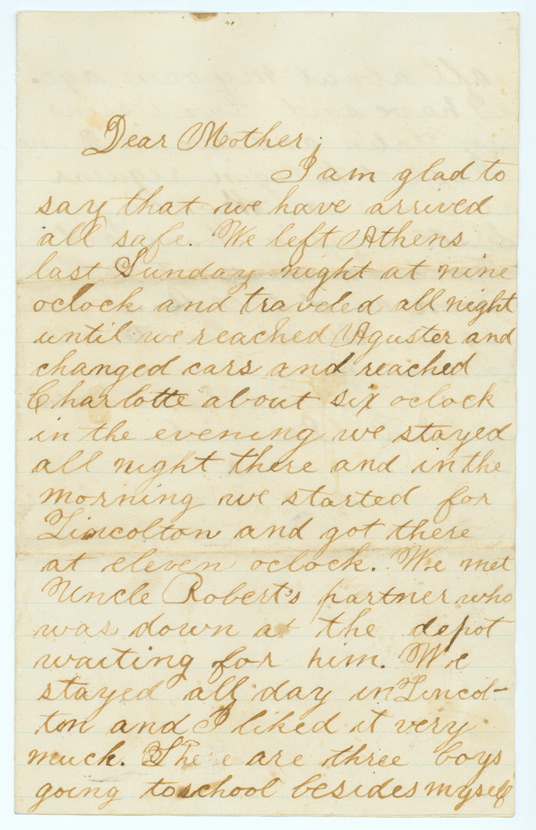 Dear Mother;
I am glad to
say that we have arrived
all safe. We left Athens
last Sunday night at nine
oclock and traveled all night
until we reached Aguster and
changed cars and reached
Charlotte about six oclock
in the evening we stayed
all night there and in the
morning we started for
Lincolton and got there
at eleven oclock. We met
Uncle Robert's partner who
was down at the depot
waiting for him. We
stayed all day in Lincol-
ton and I liked it very
much. There are three boys
going to school besides myself